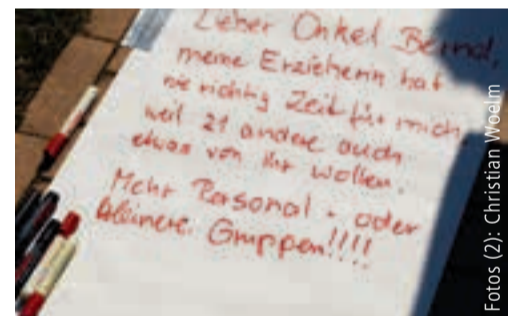 Lieber Onkel Bernd,
meine Erzieherin hat
nie richtig Zeit für mich
weil 21 andere auch
etwas von ihr wollen.
Mehr Personal + oder
kleinere Gruppen!!!!
Fotos (2): Christian Woelm